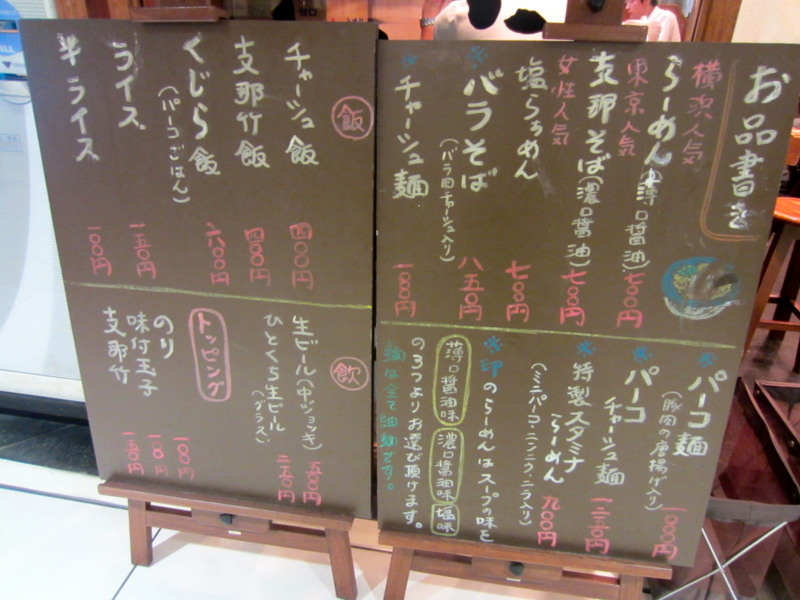 お品書き
横浜人気
らーめん(薄口醤油)七〇〇円
東京人気
支那そば(濃口醤油)七〇〇円
女性人気
塩らぁめん 七〇〇円
※バラそば 八五〇円
(バラ肉チャーシュ入り)
※チャーシュ麺 一〇〇〇円
※パーコ麺 一〇〇〇円
(豚肉の唐揚げ入り)
※パーコ
チャーシュ麺 一二五〇円
※特製スタミナ
らーめん 九〇〇円
(ミニパーコ・ニンニク・ニラ入り)
※印のらーめんはスープの味を
薄口醤油味 濃口醤油味 塩味
の3つよりお選び頂けます。
麺は全て細麺です。
飯
チャーシュ飯 四〇〇円
支那竹飯 四〇〇円
くじら飯 六〇〇円
(パーコごはん)
ライス 一五〇円
半ライス 一〇〇円
飲
生ビール(中ジョッキ) 五〇〇円
ひとくち生ビール
(グラス) 二五〇円
トッピング
のり 一〇〇円
味付玉子 一〇〇円
支那竹 一五〇円